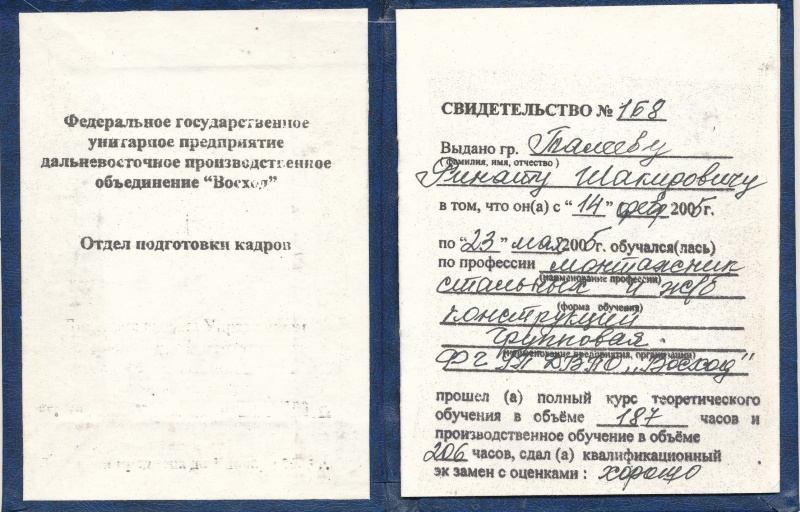 Федеральное государственное
унитарное предприятие
дальневосточное производственное
объединение "Восход"
Отдел подготовки кадров
СВИДЕТЕЛЬСТВО № 168
Выдано гр. Талееву
( фамилия, имя, отчество )
Ринату Шакировичу
в том, что он(а) с " 14 " фев 2005г.
по "23" мая 2005г. обучался(лась)
по профессии монтажник
(наименование профессии)
стальных и ж/б
(форма обучения)
конструкций
Групповая.
(наименование предприятия, организации)
ФГУП ДВПО „Восход"
прошел (а) полный курс теоретического
обучения в объёме 187 часов и
производственное обучение в объёме
206 часов, сдал (а) квалификационный
эк замен с оценками : хорошо